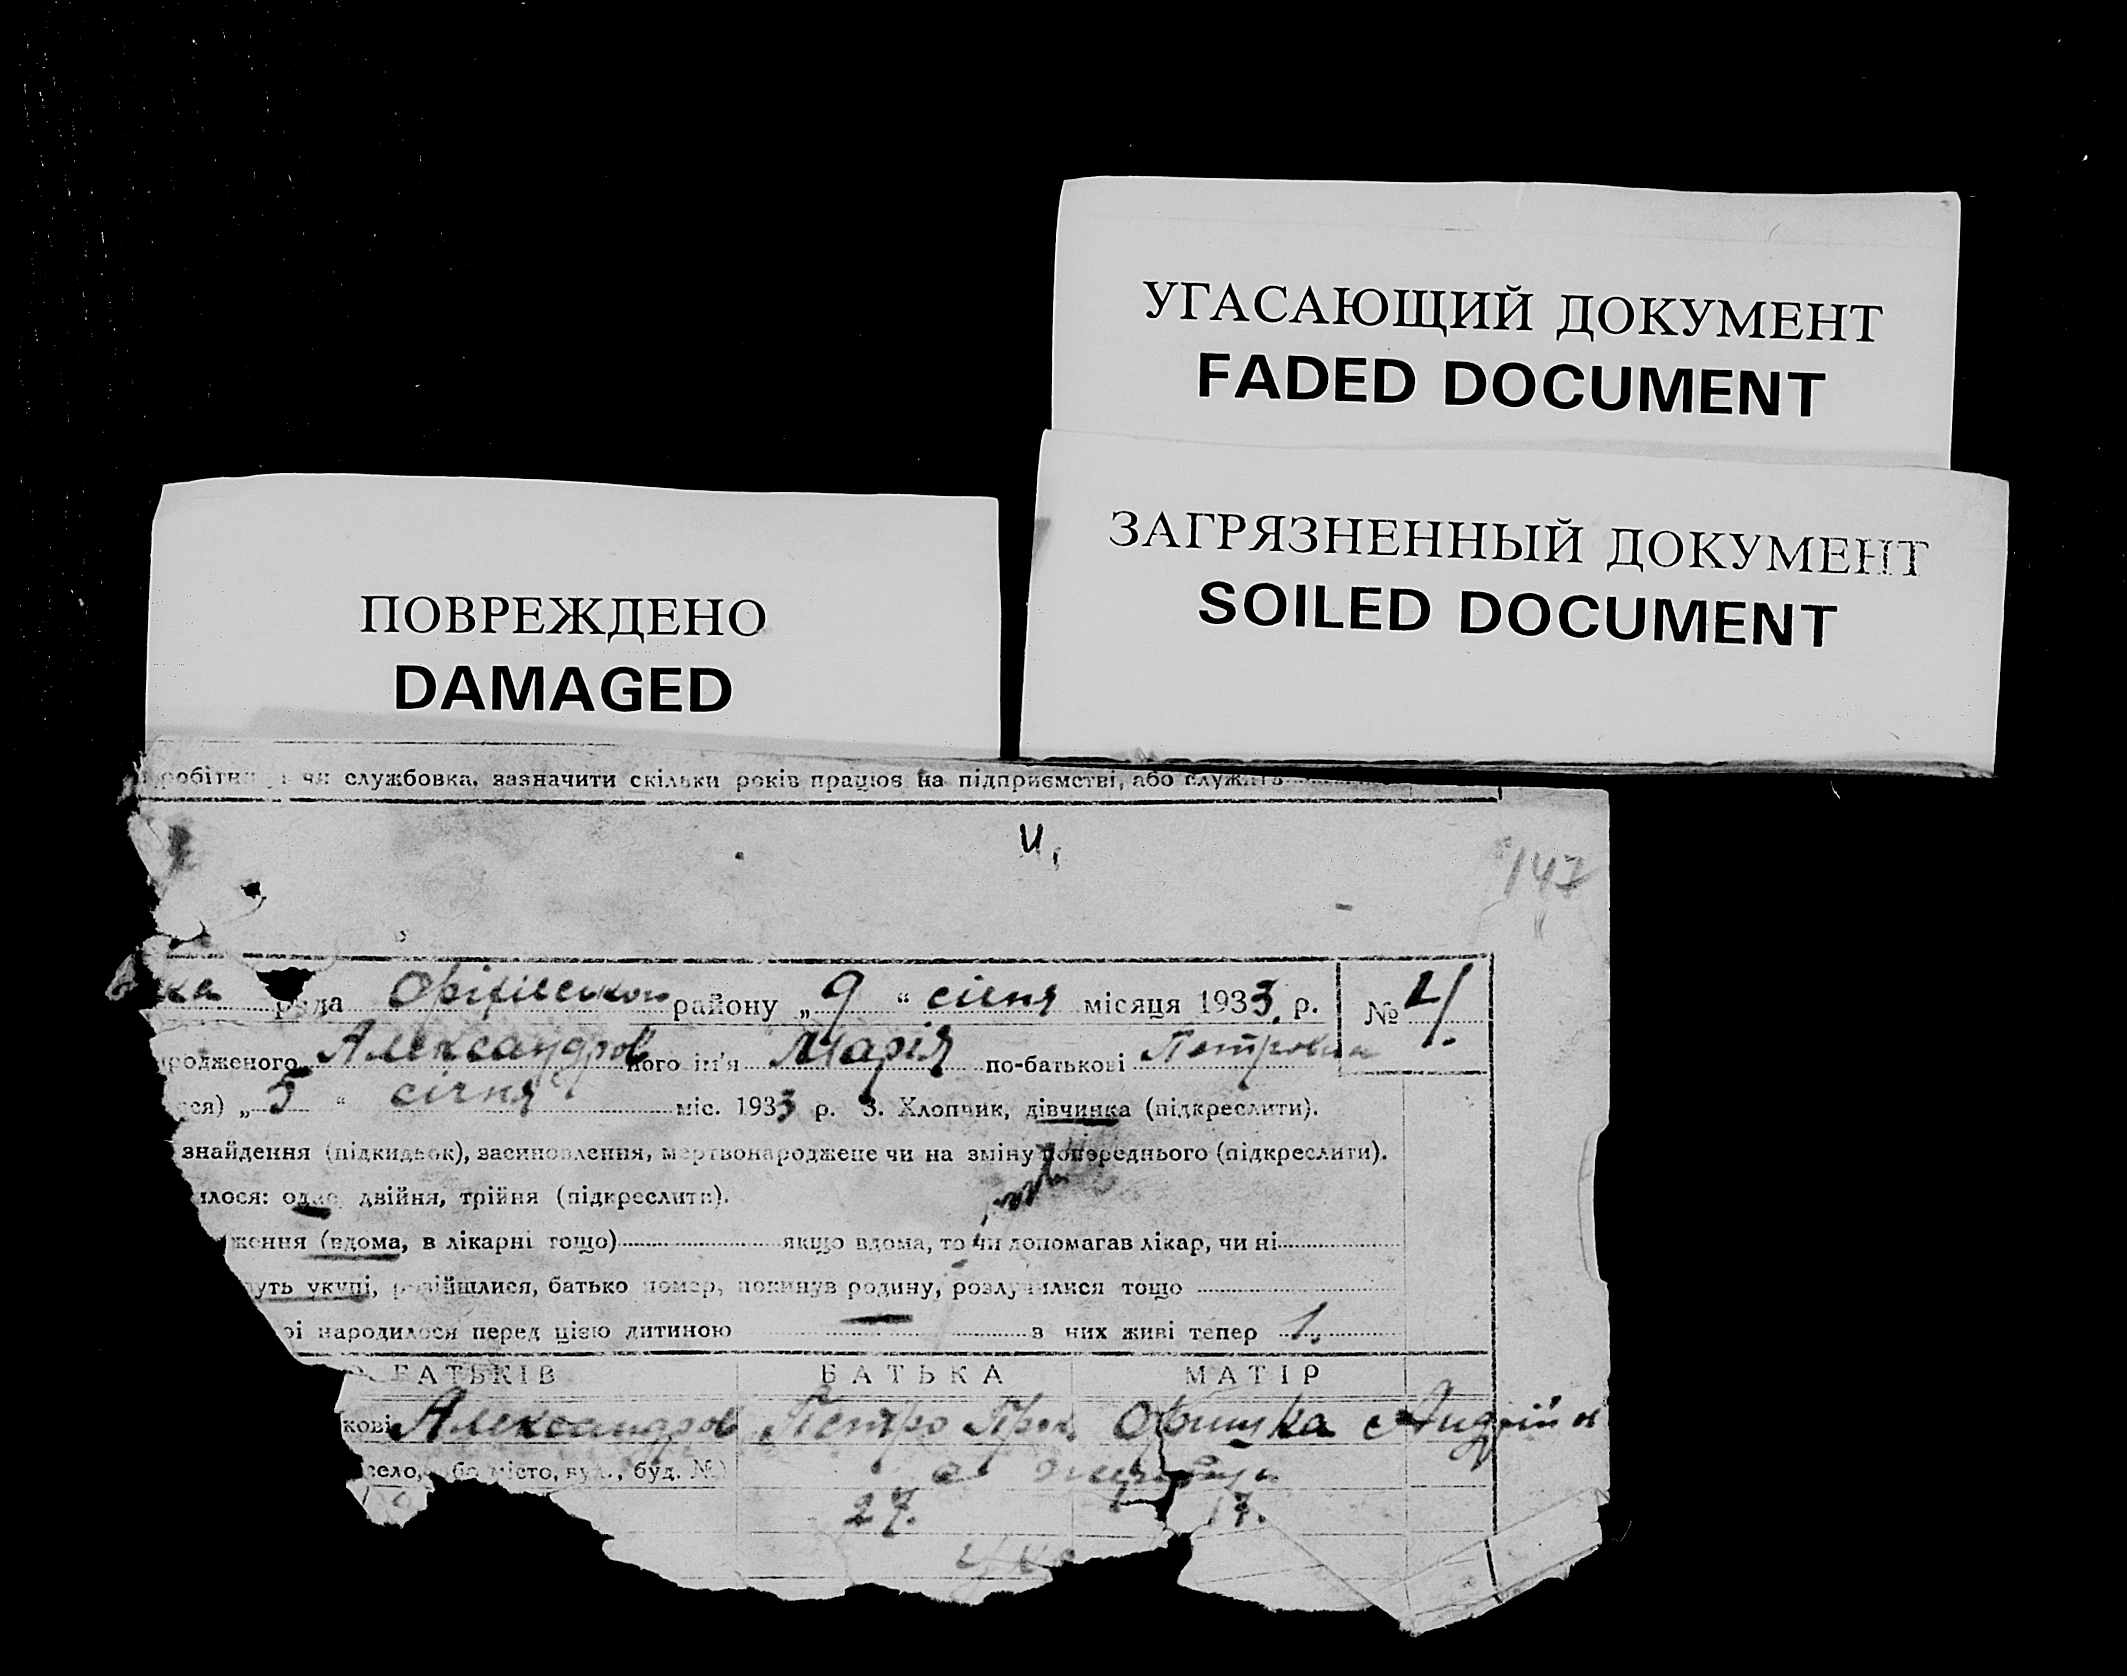 УГАСАЮЩИЙ ДОКУМЕНТ
FADED DOCUMENT
ЗАГРЯЗНЕННЫЙ ДОКУМЕНТ
SOILED DOCUMENT
ПОВРЕЖДЕНО
DAMAGED
службовка, зазначити скільки років працює на підприємстві, або служить
И,
147
ка рада району „9“ січня місяця 1933 р. № 4.
родженого Александров його ім'я Марія по-батькові Петровна
ся) „5“ січня міс. 1933 р. 3. Хлопчик, дівчинка (підкреслити).
знайдення (підкидьок), засиновлення, мертвонароджене чи на зміну попереднього (підкреслити).
илося: одно, двійня, трійня (підкреслити).
ження (вдома, в лікарні тощо) якщо вдома, то чи допомагав лікар, чи ні
уть укупі, розійшлися, батько помер, покинув родину, розлучилися тощо
рі народилося перед цією дитиною — з них живі тепер 1.
БАТЬКІВ БАТЬКА МАТІР
кові Александров Петро Прок.
село, або місто, вул., буд. №)
27. 17.